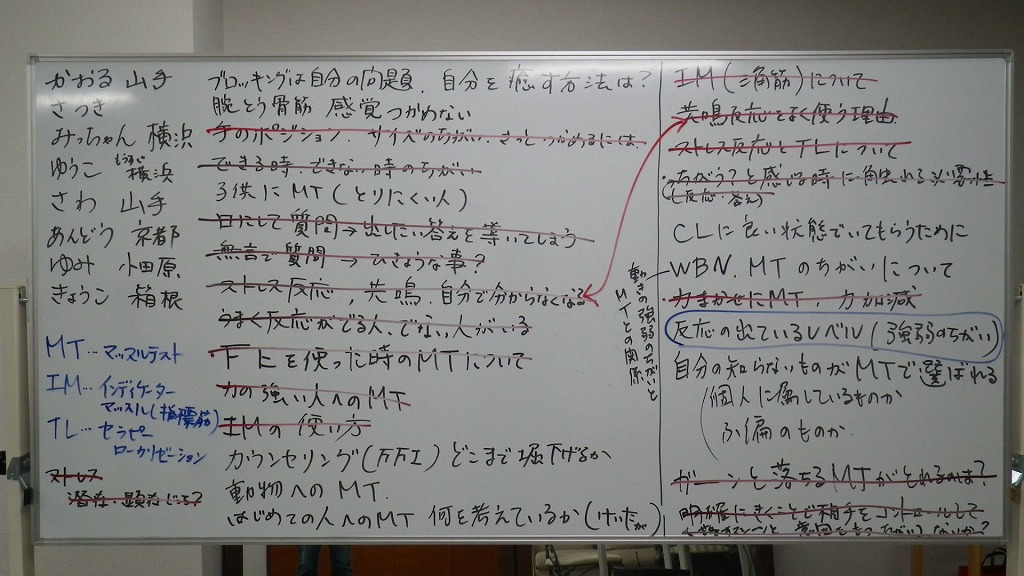 かおる 山手
さつき
みっちゃん 横浜
ゆうこ もうすぐ横浜
さわ 山手
あんどう 京都
ゆみ 小田原
きょうこ 箱根
MT…マッスルテスト
IM…インディケーター
マッスル(指標筋)
TL…セラピー
ローカリゼーション
ストレス
潜在・顕在じこ?
ブロッキングは自分の問題、自分を癒す方法は?
腕とう骨筋 感覚つかめない
手のポジション、サイズのちがい、さっとつかめるには
できる時、できない時のちがい
子供にMT(とりにくい人)
口にして質問→出したい答えを導いてしまう
無言で質問→ひきょうな事?
ストレス反応、共鳴、自分で分からなくなる
うまく反応がでる人、でない人がいる
下上を使った時のMTについて
力の強い人へのMT
IMの使い方
カウンセリング(万万I)どこまで掘下げるか
動物へのMT.
はじめての人へのMT 何を考えているか
動きの強弱のちがいと
MTとの関係
IM(三角筋)について
共鳴反応をよく使う理由
ストレス反応とTLについて
・ちがう?と感じる時に触れる必要性
(反応・答え)
CLに良い状態でいてもらうために
WBN、MTのちがいについて
力まかせにMT、力加減
反応の出ているレベル(強弱のちがい)
自分の知らないものがMTで選ばれる
個人に属しているものか
ふ偏のものか.
ガーンと落ちるMTがとれるのは?
明確にきくことで相手をコントロールして